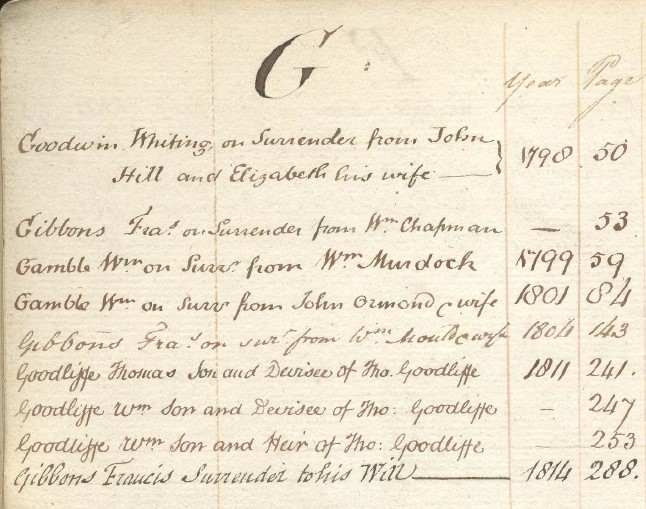 G
Year Page
Goodwin Whiting on Surrender from John
Hill and Elizabeth his wife — } 1798 50
Gibbons Fras. on Surrender from Wm Chapman — 53
Gamble Wm on Surrr. from Wm Murdock 1799 59
Gamble Wm on Surrr from John Ormond & wife 1801 84
Gibbons Fras. on surr. from Wm Mould & wife 1804 143
Goodliffe Thomas Son and Devisee of Tho. Goodliffe 1811 241.
Goodliffe Wm Son and Devisee of Tho: Goodliffe — 247
Goodliffe Wm Son and Heir of Tho: Goodliffe — 253
Gibbons Francis Surrender to his Will — 1814 288.